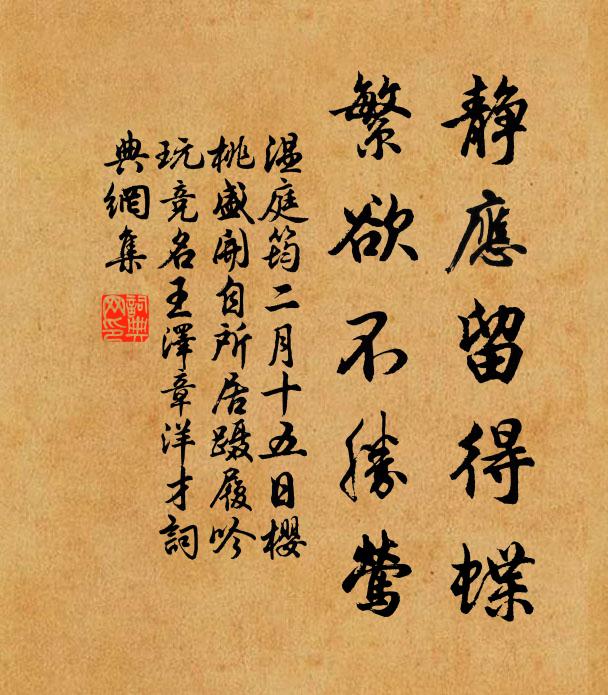 静應留得蝶
繁欲不勝鶯
温庭筠二月十五日櫻
桃盛開自所居躡履吟
玩竞名王澤章洋才詞
典網集
詞典
网印